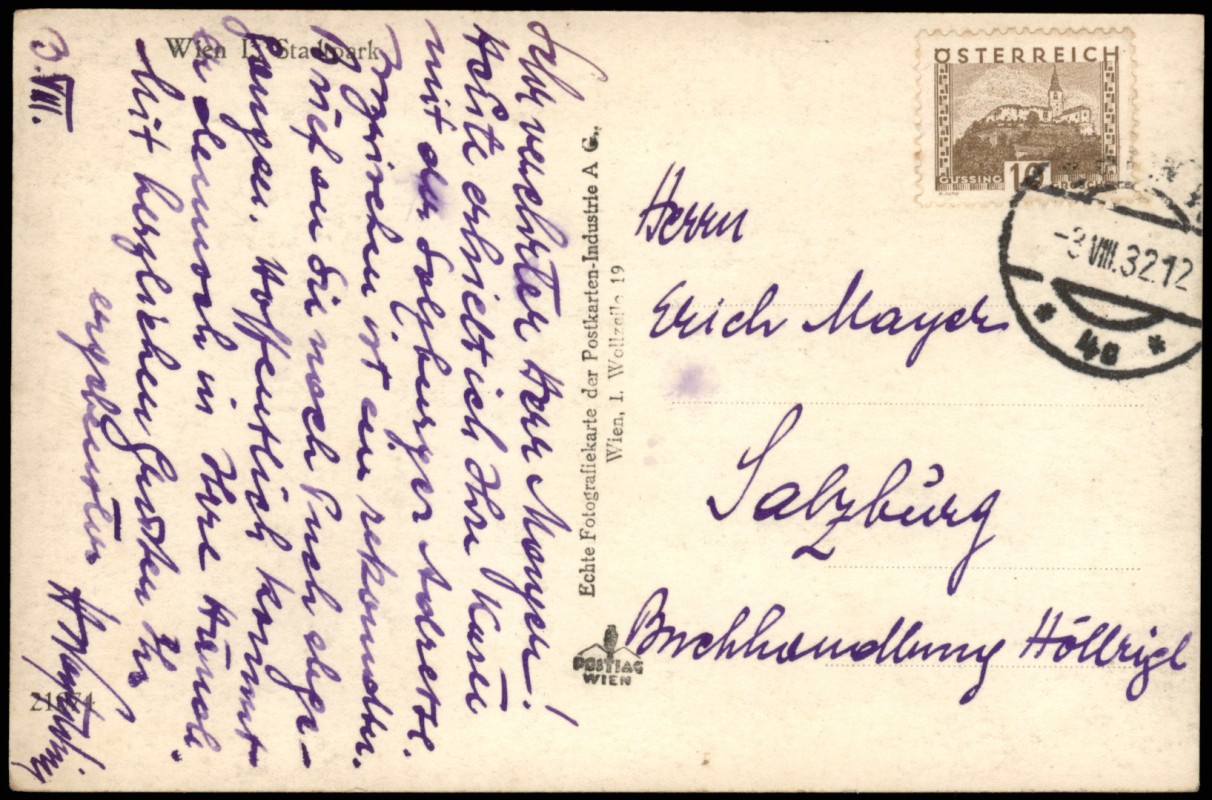 Wien I., Stadtpark
3.VIII.
Sehr verehrter Herr Mayer!
Heute erhielt ich Ihre Karte
mit der Salzburger Adresse.
Inzwischen ist ein rekomandter
Brief an Sie nach abge-
gangen. Hoffentlich kommt
er dennoch in Ihre Hände.
Mit herzlichen Grüßen Ihr
ergebenster
21674
Echte Fotografiekarte der Postkarten-Industrie A G.,
Wien, I. Wollzeile 19
POSTIAG
WIEN
ÖSTERREICH
GÜSSING 10 GROSCHEN
-3.VIII.32.12
* 4a *
Herrn
Erich Mayer
Salzburg
Buchhandlung Höllrigl